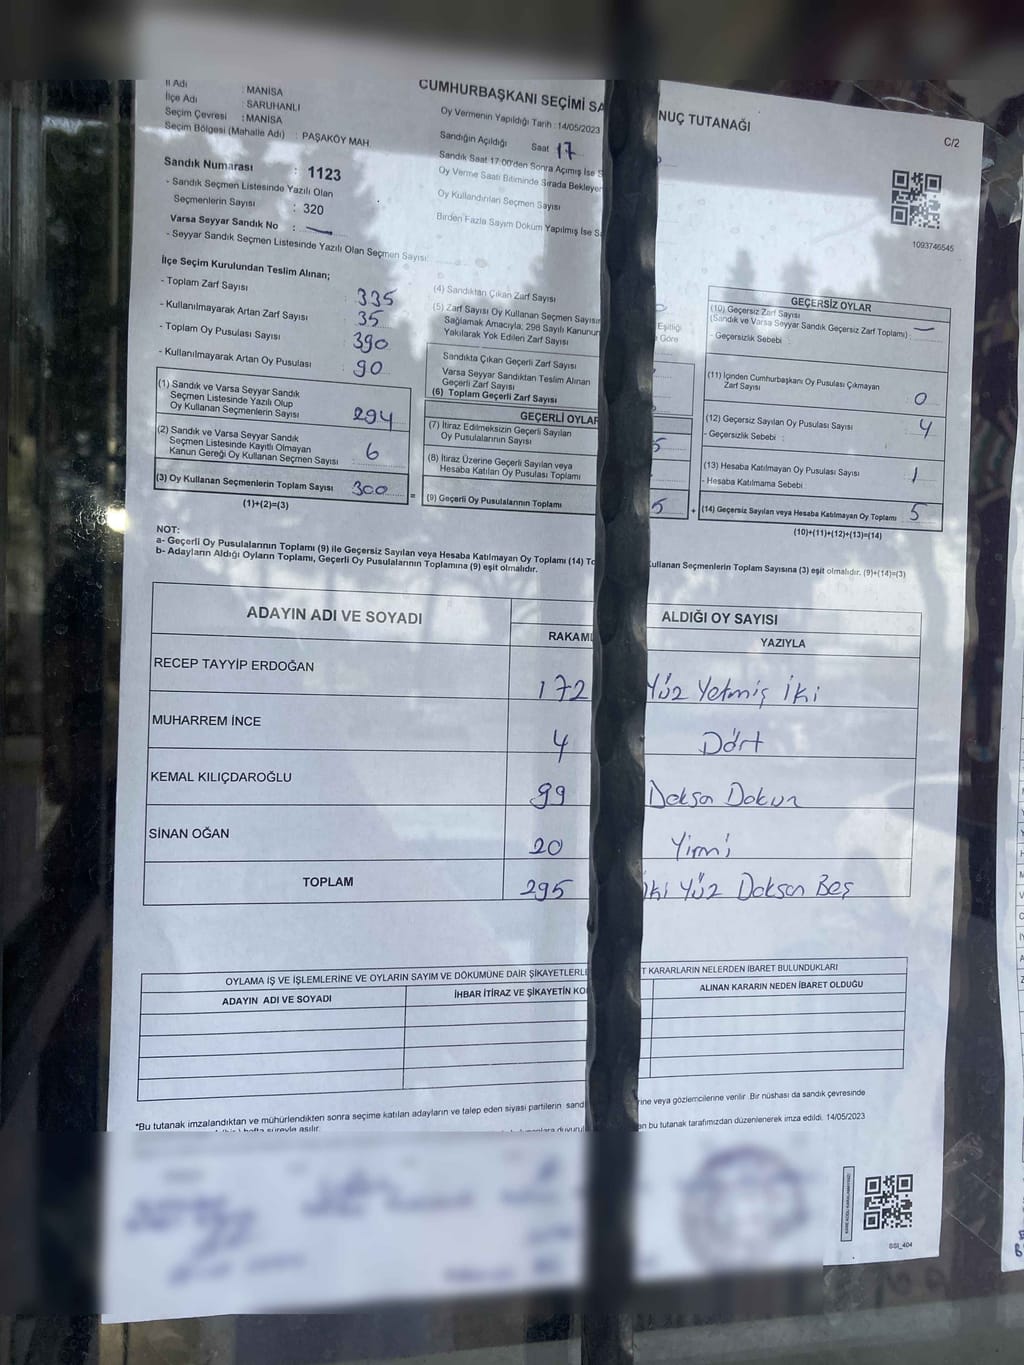 İl Adı : MANİSA
İlçe Adı : SARUHANLI
Seçim Çevresi : MANİSA
Seçim Bölgesi (Mahalle Adı) : PAŞAKÖY MAH.
Sandık Numarası : 1123
- Sandık Seçmen Listesinde Yazılı Olan
Seçmenlerin Sayısı : 320
Varsa Seyyar Sandık No :
- Seyyar Sandık Seçmen Listesinde Yazılı Olan Seçmen Sayısı:
CUMHURBAŞKANI SEÇİMİ SA
NUÇ TUTANAĞI
C/2
Oy Vermenin Yapıldığı Tarih : 14/05/2023
Sandığın Açıldığı Saat 17
Sandık Saat 17:00'den Sonra Açımış İse S
Oy Verme Saati Bitiminde Sırada Bekleyen
Oy Kullandırılan Seçmen Sayısı
Birden Fazla Sayım Döküm Yapılmış İse Sa
1093746545
İlçe Seçim Kurulundan Teslim Alınan;
- Toplam Zarf Sayısı : 335
- Kullanılmayarak Artan Zarf Sayısı : 35
- Toplam Oy Pusulası Sayısı : 390
- Kullanılmayarak Artan Oy Pusulası : 90
(1) Sandık ve Varsa Seyyar Sandık
Seçmen Listesinde Yazılı Olup
Oy Kullanan Seçmenlerin Sayısı 294
(2) Sandık ve Varsa Seyyar Sandık
Seçmen Listesinde Kayıtlı Olmayan
Kanun Gereği Oy Kullanan Seçmen Sayısı 6
(3) Oy Kullanan Seçmenlerin Toplam Sayısı 300
(1)+(2)=(3)
=
(4) Sandıktan Çıkan Zarf Sayısı
(5) Zarf Sayısı Oy Kullanan Seçmen Sayısın
Eşitliği
Sağlamak Amacıyla, 298 Sayılı Kanunun
Göre
Yakılarak Yok Edilen Zarf Sayısı
Sandıkta Çıkan Geçerli Zarf Sayısı
Varsa Seyyar Sandıktan Teslim Alınan
Geçerli Zarf Sayısı
(6) Toplam Geçerli Zarf Sayısı
GEÇERLİ OYLAR
(7) İtiraz Edilmeksizin Geçerli Sayılan
Oy Pusulalarının Sayısı 5
(8) İtiraz Üzerine Geçerli Sayılan veya
Hesaba Katılan Oy Pusulası Toplamı
(9) Geçerli Oy Pusulalarının Toplamı 5
+
GEÇERSİZ OYLAR
(10) Geçersiz Zarf Sayısı
(Sandık ve Varsa Seyyar Sandık Geçersiz Zarf Toplamı) : —
- Geçersizlik Sebebi :
(11) İçinden Cumhurbaşkanı Oy Pusulası Çıkmayan
Zarf Sayısı 0
(12) Geçersiz Sayılan Oy Pusulası Sayısı 4
- Geçersizlik Sebebi :
(13) Hesaba Katılmayan Oy Pusulası Sayısı 1
- Hesaba Katılmama Sebebi
(14) Geçersiz Sayılan veya Hesaba Katılmayan Oy Toplamı 5
(10)+(11)+(12)+(13)=(14)
NOT:
a- Geçerli Oy Pusulalarının Toplamı (9) ile Geçersiz Sayılan veya Hesaba Katılmayan Oy Toplamı (14) To
ullanan Seçmenlerin Toplam Sayısına (3) eşit olmalıdır. (9)+(14)=(3)
b- Adayların Aldığı Oyların Toplamı, Geçerli Oy Pusulalarının Toplamına (9) eşit olmalıdır.
ADAYIN ADI VE SOYADI
ALDIĞI OY SAYISI
RAKAML YAZIYLA
RECEP TAYYİP ERDOĞAN 172 Yüz Yetmiş İki
MUHARREM İNCE 4 Dört
KEMAL KILIÇDAROĞLU 99 Doksa Dokuz
SİNAN OĞAN 20 Yirmi
TOPLAM 295 İki Yüz Doksan Beş
OYLAMA İŞ VE İŞLEMLERİNE VE OYLARIN SAYIM VE DÖKÜMÜNE DAİR ŞİKAYETLERLE
T KARARLARIN NELERDEN İBARET BULUNDUKLARI
ADAYIN ADI VE SOYADI
İHBAR İTİRAZ VE ŞİKAYETİN KO
ALINAN KARARIN NEDEN İBARET OLDUĞU
*Bu tutanak imzalandıktan ve mühürlendikten sonra seçime katılan adayların ve talep eden siyasi partilerin sand
rine veya gözlemcilerine verilir. Bir nüshası da sandık çevresinde
hafta süreyle asılır.
an bu tutanak tarafımızdan düzenlenerek imza edildi. 14/05/2023
SSI_404